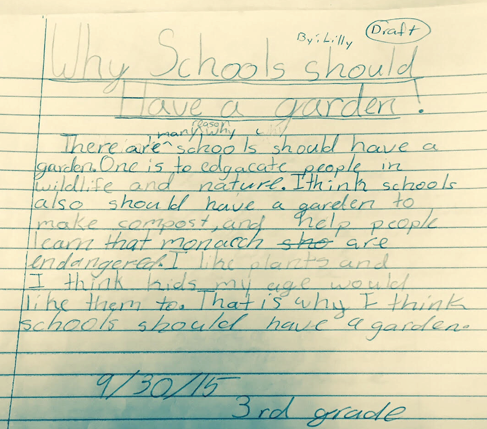 By: Lilly
Draft
Why Schools should
Have a garden!
reason
many why
There are schools should have a
garden. One is to edgacate people in
wildlife and nature. I think schools
also should have a garden to
make compost, and help people
learn that monarch sho are
endangered. I like plants and
I think kids my age would
like them to. That is why I think
schools should have a garden.
9/30/15
3rd grade